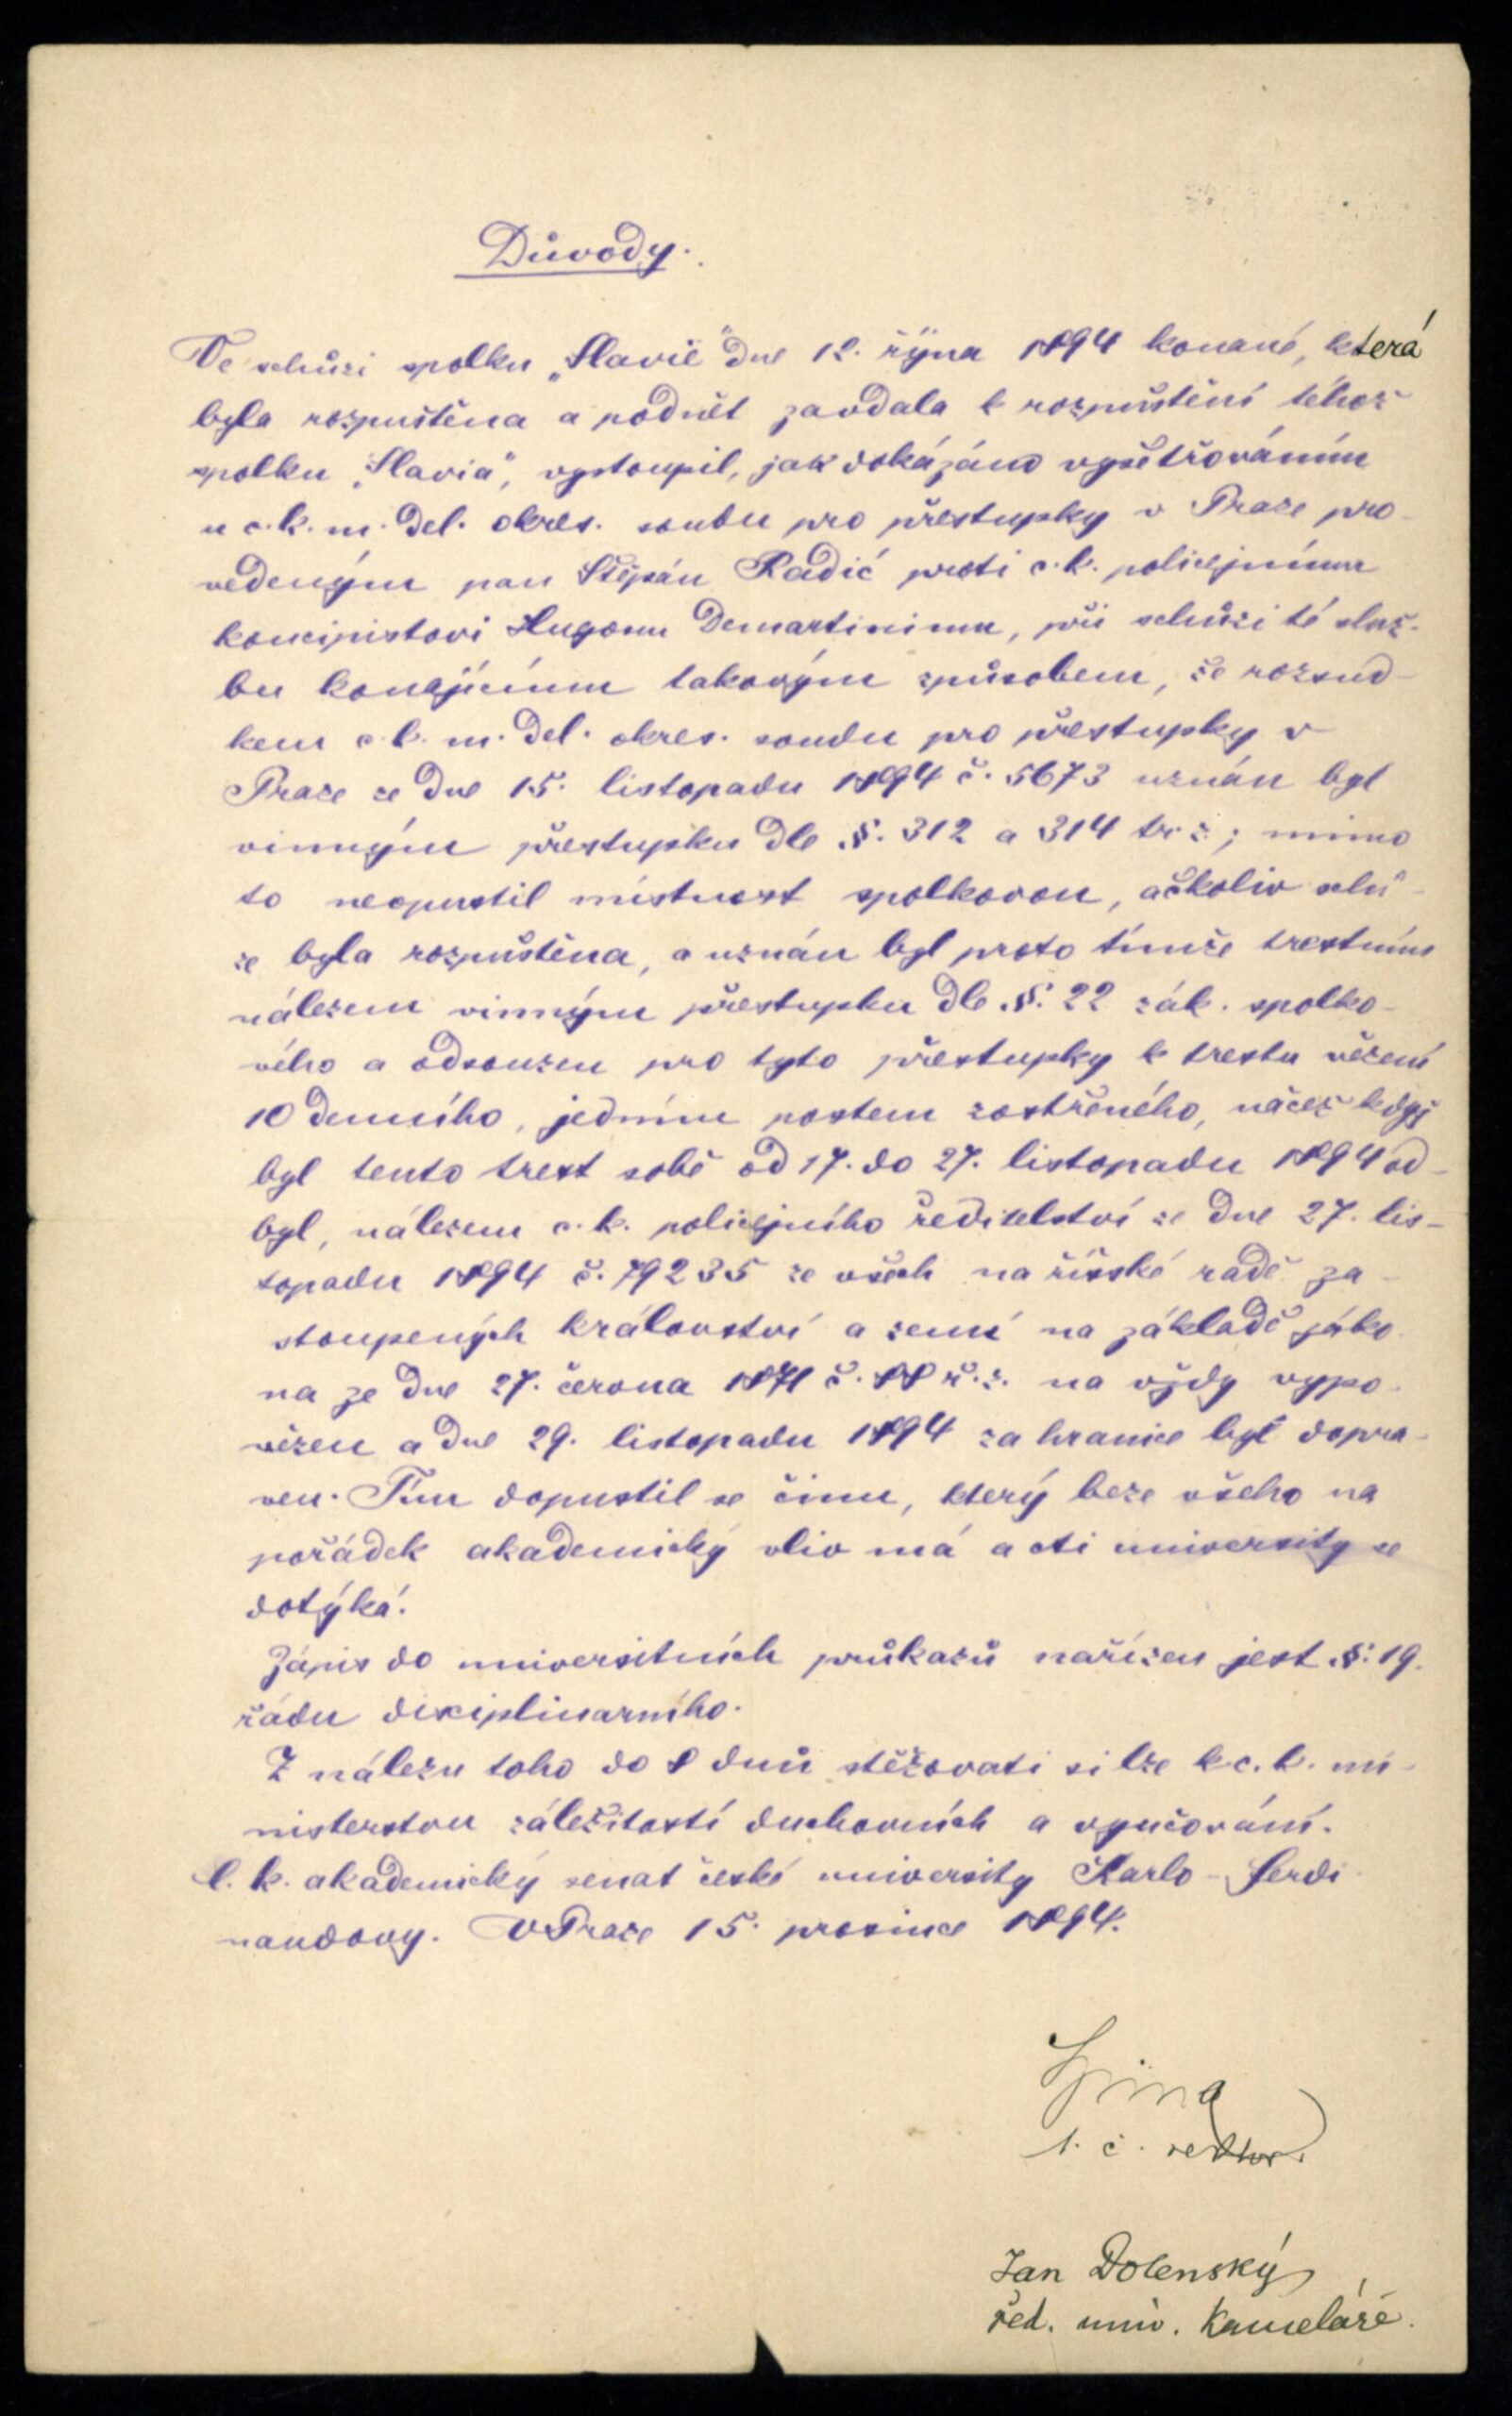 Důvody.
Ve schůzi spolku „Slavie" dne 12. října 1894 konané, která
byla rozpuštěna a podnět zavdala k rozpuštění téhož
spolku „Slavia", vystoupil, jak dokázáno vyšetřováním
u c. k. m. del. okres. soudu pro přestupky v Praze pro-
vedeným pan Štěpán Radić proti c. k. policejnímu
koncipistovi Hugonu Demartinimu, při schůzi té služ-
bu konajícímu takovým způsobem, že rozsud-
kem c. k. m. del. okres. soudu pro přestupky v
Praze ze dne 15. listopadu 1894 č. 5673 uznán byl
vinným přestupku dle §. 312 a 314 tr. z; mimo
to neopustil místnost spolkovou, ačkoliv schů-
ze byla rozpuštěna, a uznán byl proto tímže trestním
nálezem vinným přestupku dle §. 22 zák. spolko-
vého a odsouzen pro tyto přestupky k trestu vězení
10 denního, jedním postem zostřeného, načež když
byl tento trest sobě od 17. do 27. listopadu 1894 od-
byl, nálezem c. k. policejního ředitelství ze dne 27. lis-
topadu 1894 č. 79235 ze všech na říšské radě za-
stoupených království a zemí na základě záko-
na ze dne 27. června 1871 č. 88 ř. z. na vždy vypo-
vězen a dne 29. listopadu 1894 za hranice byl dopra-
ven. Tím dopustil se činu, který beze všeho na
pořádek akademický vliv má a cti university se
dotýká.
Zápis do universitních průkazů nařízen jest §. 19.
řádu disciplinarního.
Z nálezu toho do 8 dnů stěžovati si lze k c. k. mi-
nisterstvu záležitostí duchovních a vyučování.
C. k. akademický senat české university Karlo-Ferdi-
nandovy. V Praze 15. prosince 1894.
t. č. rektor.
Jan Dolenský
řed. univ. kanceláře.